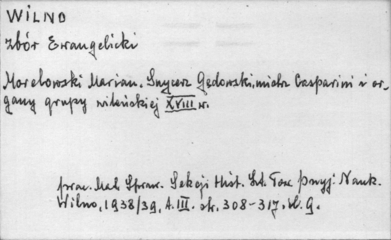 WILNO
zbór Ewangelicki
Morelowski Marian. Snycerz Gędowski, mistrz Casparini i or-
gany grupy wileńskiej XVIII w.
prac. Mat. Spraw. Sekcji Hist. Szt. Tow. Przyj. Nauk.
Wilno, 1938/39, t. III. str. 308-317, il. 9.